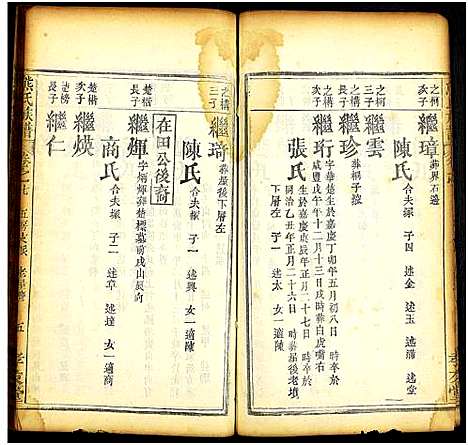 之構
繼璋
葬界石邊
陳氏
合夫塚 子四 述金 述玉 述滌 述堂
之柯
三子
繼雲
之構
次子
繼珍
葬桐子
繼珩
字華楚生於嘉慶丁卯年五月初八日 時卒於
咸豐戊午年十二月十三日戌時葬白虎嘴右
張氏
生於嘉慶庚辰年正月二十七日 時卒於
同治乙丑年正月二十六日 時葬屋後老墳
下層左 子一 述太 女一適陳
之構
三子
繼琦
葬屋後下層左
陳氏
合夫塚 子一 述興 女一適陳
在田公後裔
楚楷
長子
繼輝
字炳輝葬楚標墓前戌山辰向
商氏
合夫塚 子二 述卓 述達 女一適商
楚楷
次子
繼煐
楚榜
長子
繼仁
五